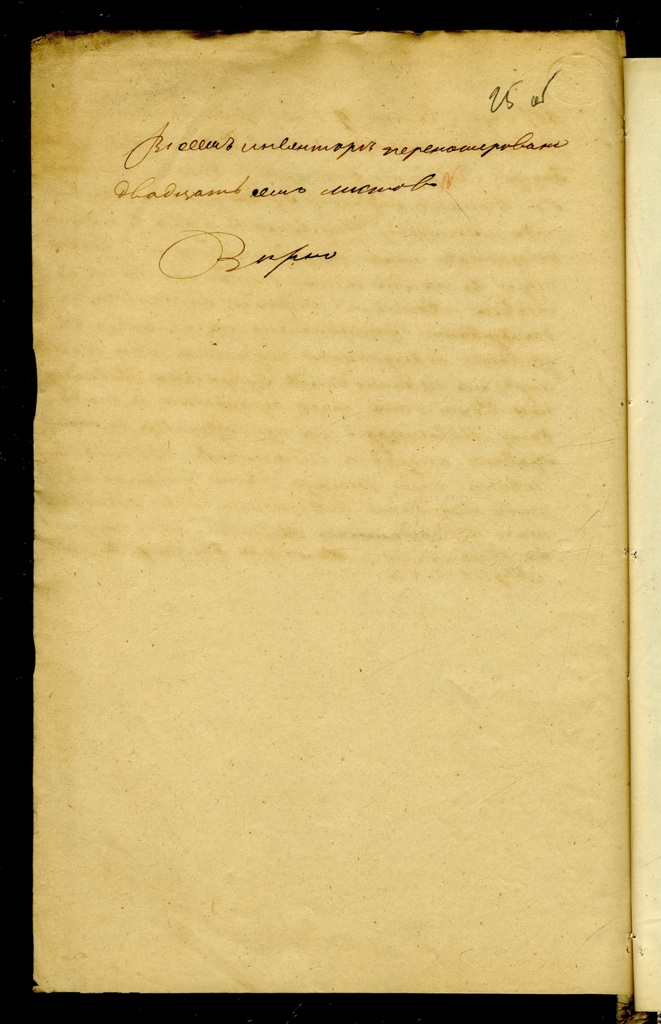 25 об
Въ семъ инвентаръ перенумеровано
двадцать семь листов
Вѣрно